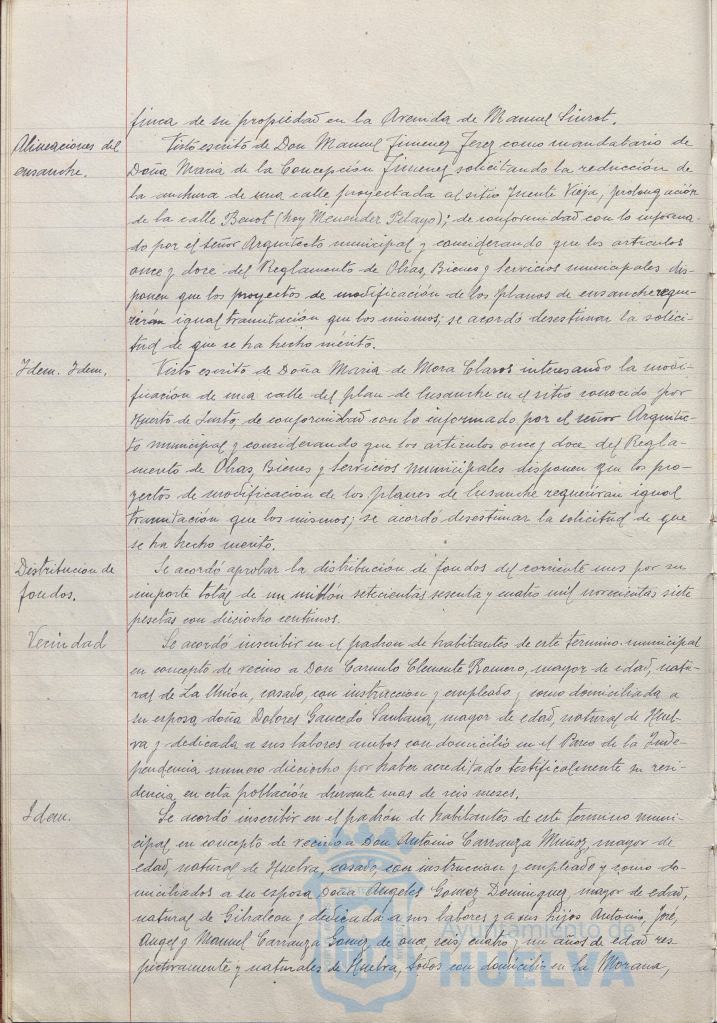 finca de su propiedad en la Avenida de Manuel Siurot.
Alineaciones del
ensanche.
Visto escrito de Don Manuel Jimenez Jerez como mandatario de
Doña Maria de la Concepción Jimenez solicitando la reducción de
la anchura de una calle proyectada al sitio Fuente Vieja, prolongación
de la calle Benot (hoy Menendez Pelayo); de conformidad con lo informa-
do por el señor Arquitecto municipal y considerando que los articulos
once y doce del Reglamento de Obras, Bienes y Servicios municipales dis-
ponen que los proyectos de modificación de los planos de ensanche reque-
rirán igual tramitación que los mismos; se acordó desestimar la solici-
tud de que se ha hecho mérito.
Idem. Idem.
Visto escrito de Doña Maria de Mora Claros interesando la modi-
ficación de una calle del plan de Ensanche en el sitio conocido por
Huerto de Justo, de conformidad con lo informado por el señor Arquitec-
to municipal y considerando que los articulos once y doce del Regla-
mento de Obras, Bienes y Servicios municipales disponen que los pro-
yectos de modificacion de los planes de Ensanche requerirán igual
tramitación que los mismos; se acordó desestimar la solicitud de que
se ha hecho merito.
Distribucion de
fondos.
Se acordó aprobar la distribución de fondos del corriente mes por su
importe total de un millón setecientas sesenta y cuatro mil novecientas siete
pesetas con dieciocho centimos.
Vecindad
Se acordó inscribir en el padron de habitantes de este termino municipal
en concepto de vecino a Don Carmelo Clemente Romero, mayor de edad, natu-
ral de La Unión, casado, con instrucción y empleado y como domiciliada a
su esposa doña Dolores Saucedo Santana, mayor de edad, natural de Huel-
va y dedicada a sus labores ambos con domicilio en el Paseo de la Inde-
pendencia numero dieciocho por haber acreditado testificalmente su resi-
dencia en esta población durante mas de seis meses.
Idem.
Se acordó inscribir en el padrón de habitantes de este termino muni-
cipal en concepto de vecino a Don Antonio Carranza Muñoz, mayor de
edad, natural de Huelva, casado, con instruccion y empleado y como do-
miciliados a su esposa Doña Angeles Gomez Dominguez, mayor de edad,
natural de Gibraleon y dedicada a sus labores y a sus hijos Antonio, José,
Angel y Manuel Carranza Gomez de once, seis, cuatro y un años de edad res-
pectivamente y naturales de Huelva, todos con domicilio en la Morana,
Ayuntamiento de
HUELVA